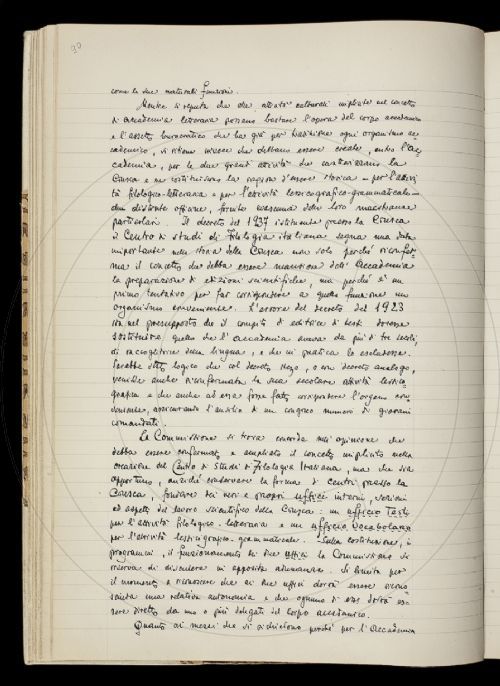 90
come la sue naturali funzioni.
Mentre si reputa che alle attività culturali implicite nel concetto
di accademia letteraria possano bastare l'opera del corpo accademico
e l'assetto burocratico che ha già per tradizione ogni organismo ac-
cademico, si ritiene invece che debbano essere create, entro l'Ac-
cademia, per le due grandi attività che caratterizzano la
Crusca e ne costituiscono la ragion d'essere storica - per l'attivi-
tà filologico-letteraria e per l'attività lessicografico-grammaticale -
due distinte officine, fornite ciascuna delle loro maestranze
particolari. Il decreto del 1937 istituente presso la Crusca
il Centro di studi di filologia italiana segna una data
importante nella storia della Crusca non solo perché riconfer-
ma il concetto che debba essere mansione dell'Accademia
la preparazione di edizioni scientifiche, ma perché è un
primo tentativo per far corrispondere a quella funzione un
organismo conveniente. L'errore del decreto del 1923
sta nel presupposto che il compito di editrice di testi dovesse
sostituire quello che l'Accademia aveva da più di tre secoli,
di raccoglitrice della lingua, e che in pratica lo escludesse.
Sarebbe stato logico che col decreto stesso, o con decreto analogo,
venisse anche riconfermata la sua secolare attività lessico-
grafica e che anche ad essa fosse fatto corrispondere l'organo con-
veniente, assicurando l'ausilio di un congruo numero di giovani
comandati.
La Commissione si trova concorde nell'opinione che
debba essere confermato e ampliato il concetto implicito nella
creazione del Centro di Studi di Filologia Italiana, ma che sia
opportuno, anziché conservare la forma di centri presso la
Crusca, fondare dei veri e propri uffici interni, sezioni
ed aspetti del lavoro scientifico della Crusca: un ufficio Testi
per l'attività filologico-letteraria e un ufficio Vocabolario
per l'attività lessicografico-grammaticale. Sulla costituzione, i
programmi, il funzionamento dei due uffici la Commissione si
riserva di discutere in apposite adunanze. Si limita per
il momento a riconoscere che ai due uffici dovrà essere ricono-
sciuta una relativa autonomia e che ognuno di essi dovrà es-
sere diretto da uno o più delegati del corpo accademico.
Quanto ai mezzi che si richiedono perché per l'Accademia